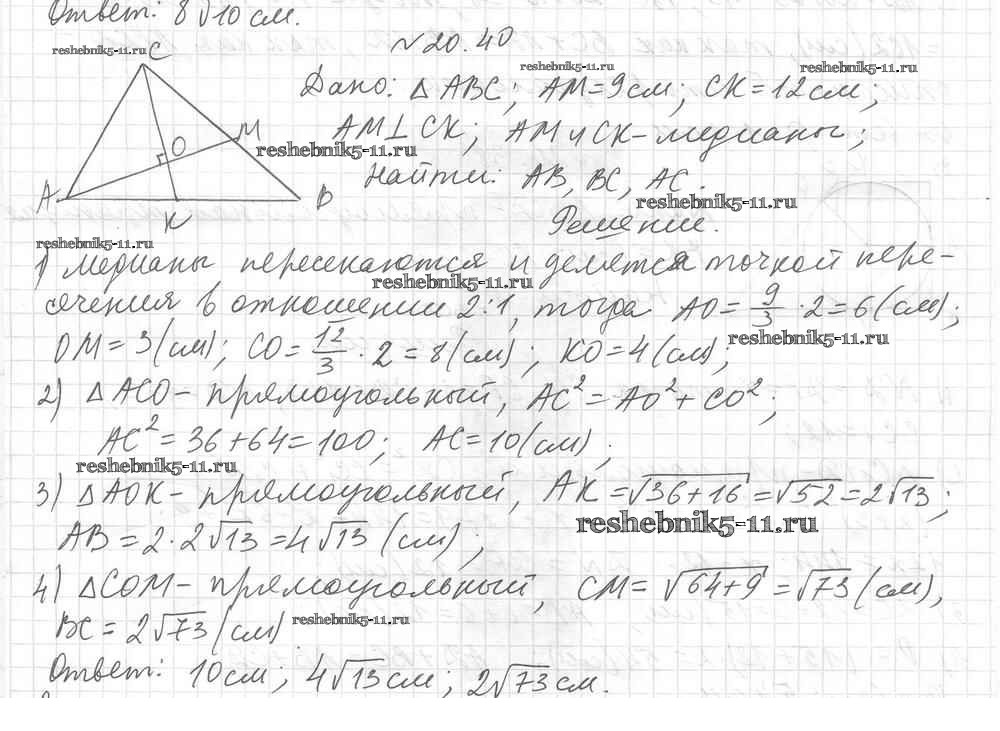 Ответ: 8√10 см.
№20.40
reshebnik5-11.ru
C
reshebnik5-11.ru
reshebnik5-11.ru
Дано: △ ABC; AM=9см; CK=12см;
AM⊥CK; AM и CK-медианы;
O
M
reshebnik5-11.ru
Найти: AB, BC, AC.
A
B
K
reshebnik5-11.ru
Решение.
reshebnik5-11.ru
1) медианы пересекаются и делятся точкой пере-
reshebnik5-11.ru
сечения в отношении 2:1, тогда AO = 9/3 · 2 = 6 (см);
reshebnik5-11.ru
OM = 3 (см); CO = 12/3 · 2 = 8 (см); KO = 4 (см);
2) △ACO - прямоугольный, AC² = AO² + CO²;
AC² = 36 + 64 = 100; AC = 10 (см);
reshebnik5-11.ru
3) △AOK - прямоугольный, AK = √36+16 = √52 = 2√13;
reshebnik5-11.ru
AB = 2·2√13 = 4√13 (см);
4) △COM - прямоугольный, CM = √64+9 = √73 (см),
BC = 2√73 (см)
reshebnik5-11.ru
Ответ: 10см; 4√13см; 2√73см.